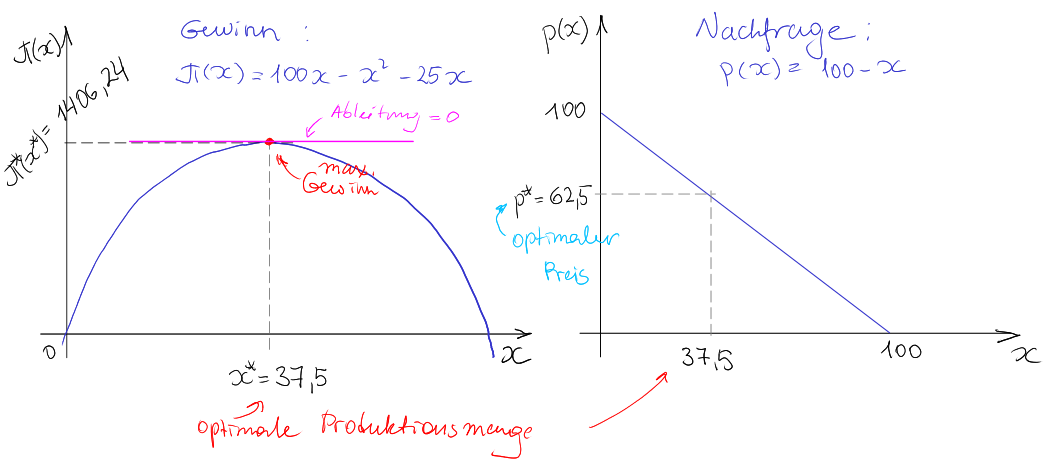 Gewinn :
π(x) = 100x - x² - 25x
π(x)
π*(x*) = 1406,24
Ableitung = 0
max.
Gewinn
0
x
x* = 37,5
optimale Produktionsmenge
Nachfrage :
p(x) = 100 - x
p(x)
100
p* = 62,5
optimaler
Preis
37,5
100
x